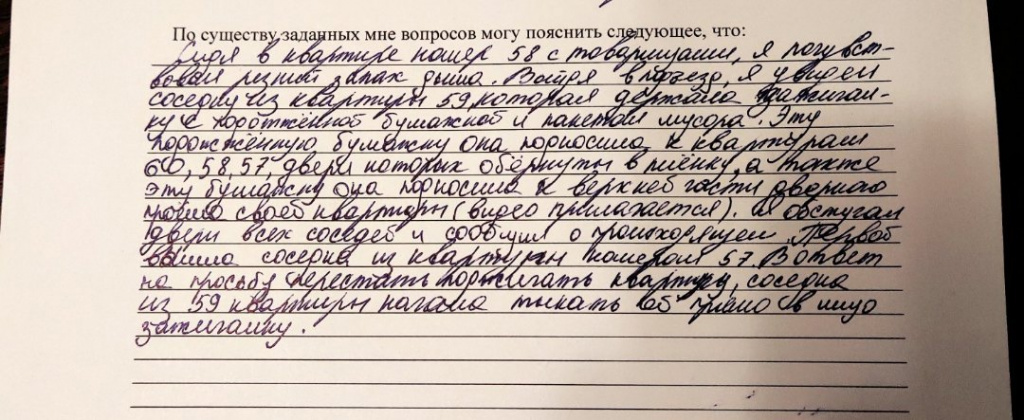 По существу заданных мне вопросов могу пояснить следующее, что:
Сидя в квартире номер 58 с товарищами, я почувст-
вовал резкий запах дыма. Выйдя в подъезд, я увидел
соседку из квартиры 59, которая держала зажигал-
ку с подожжённой бумажкой и пакетом мусора. Эту
подожжённую бумажку она подносила к квартирам
60, 58, 57, двери которых обёрнуты в плёнку, а также
эту бумажку она подносила к верхней части дверного
проёма своей квартиры (видео прилагается). Я обстучал
двери всех соседей и сообщил о происходящем. Первой
вышла соседка из квартиры номером 57. В ответ
на просьбу перестать поджигать квартиру, соседка
из 59 квартиры начала тыкать ей прямо в лицо
зажигалку.